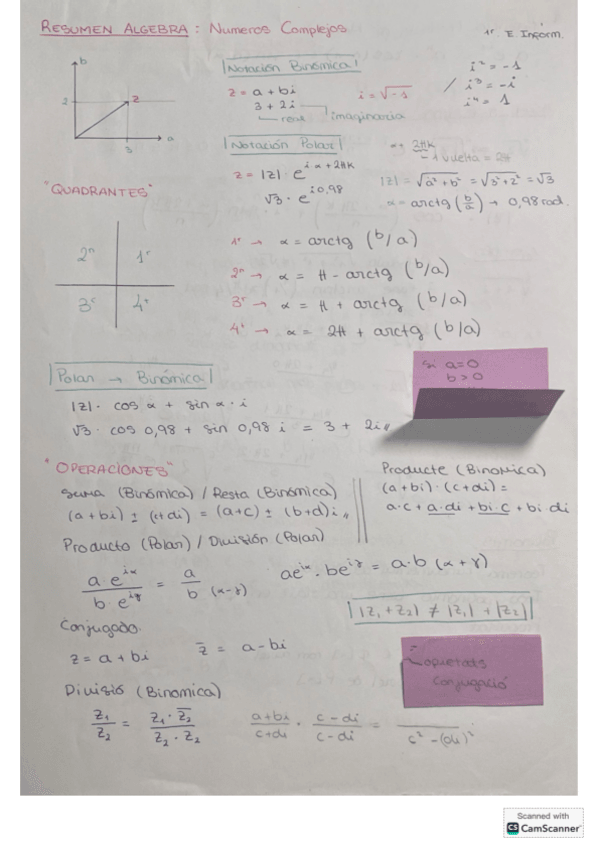 RESUMEN ALGEBRA : Numeros Complejos
1r E Inform.
b
2
z
3
a
Notación Binómica
z = a + bi
3 + 2i
real
imaginaria
i = √-1
i² = -1
/ i³ = -i
i⁴ = 1
Notación Polar
z = |z| · e^(iα+2πk)
√3 · e^(i0,98)
α + 2πk
1 vuelta = 2π
|z| = √(a²+b²) = √(3²+2²) = √3
α = arctg (b/a) → 0,98 rad.
"QUADRANTES"
2n 1r
3r 4t
1r → α = arctg (b/a)
2n → α = π - arctg (b/a)
3r → α = π + arctg (b/a)
4t → α = 2π + arctg (b/a)
Si a=0
b > 0
Polar → Binómica
|z| · cos α + sin α · i
√3 · cos 0,98 + sin 0,98 i = 3 + 2i //
"OPERACIONES"
Suma (Binómica) / Resta (Binómica)
(a+bi) ± (c+di) = (a+c) ± (b+d)i //
Producte (Binomica)
(a+bi) · (c+di) =
a·c + a·di + bi·c + bi·di
Producto (Polar) / División (Polar)
a·e^(iα) / b·e^(iγ) = a/b (α-γ)
ae^(iα) · be^(iγ) = a·b (α+γ)
|z₁ + z₂| ≠ |z₁| + |z₂|
Conjugado
z = a + bi
z̄ = a - bi
conjugació
Divisió (Binomica)
z₁/z₂ = z₁·z̄₂ / z₂·z₂
a+bi / c+di · c-di / c-di = / c² - (di)²
Scanned with
CS CamScanner